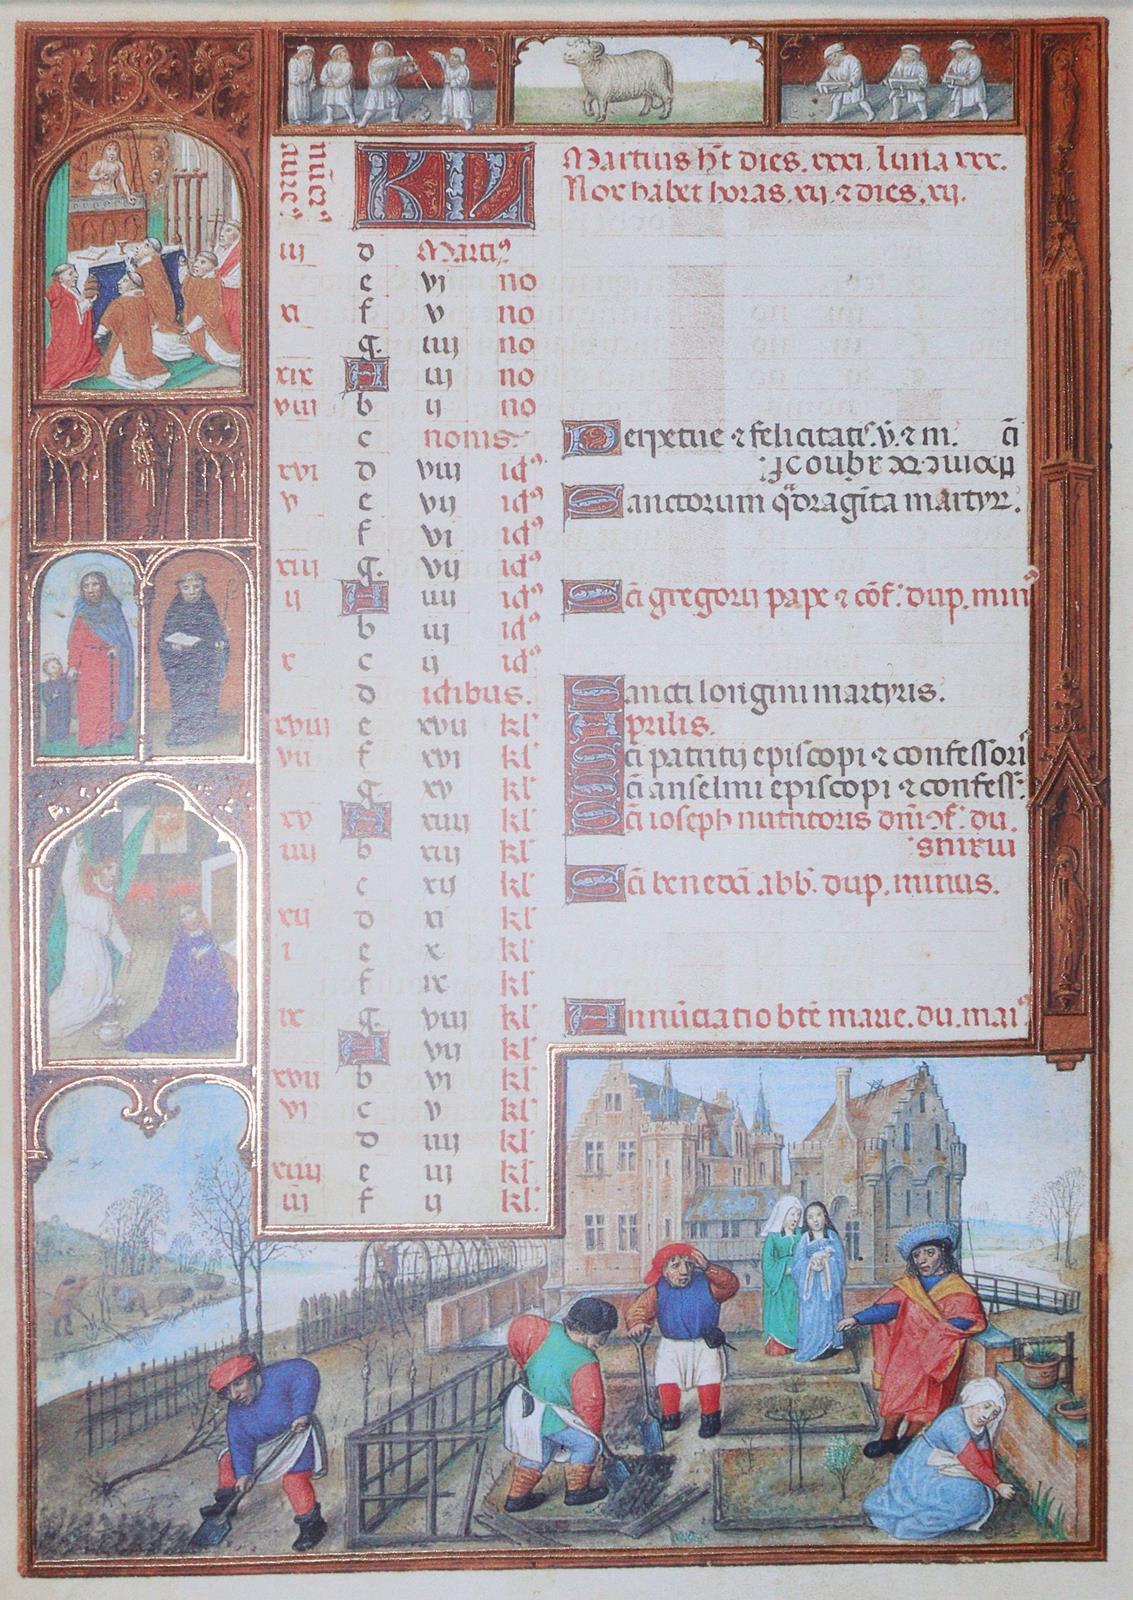 nu͛er⁹
aure⁹
KL Martius h't dies. xxxi. luna xxx.
Nox habet horas. xij. ⁊ dies. xij.
iij d Marti⁹
e vj no
xi f v no
g. iiij no
xix A iij no
viij b ij no
c nonis. Perpetue ⁊ felicitatꝭ. v̄. ⁊ m. c̄i
xvi d viij id⁹
v e vij id⁹ Sanctorum q̄dragīta martyr.
f vi id⁹
xiij g. vij id⁹
ij A iiij id⁹ Sc̄i gregorii pape ⁊ cōf. dup. min⁹
b iij id⁹
x c ij id⁹
d idibus. Sancti longini martyris.
xviij e xvij kl' Aprilis.
vij f xvi kl' Sc̄i patritij episcopi ⁊ confessori⁹
g. xv kl' Sc̄i anselmi episcopi ⁊ confess.
xv A xiiij kl' Sc̄i ioseph nutritoris dn̄i ↄf. du.
iiij b xiij kl' minus
c xij kl' Sc̄i benedc̄i abb. dup. minus.
xij d xi kl'
i e x kl'
f ix kl'
ix g. viij kl' Annūciatio btē marie. du. mai⁹
A vij kl'
xvij b vj kl'
vj c v kl'
d iiij kl'
xiiij e iij kl'
iij f ij kl'